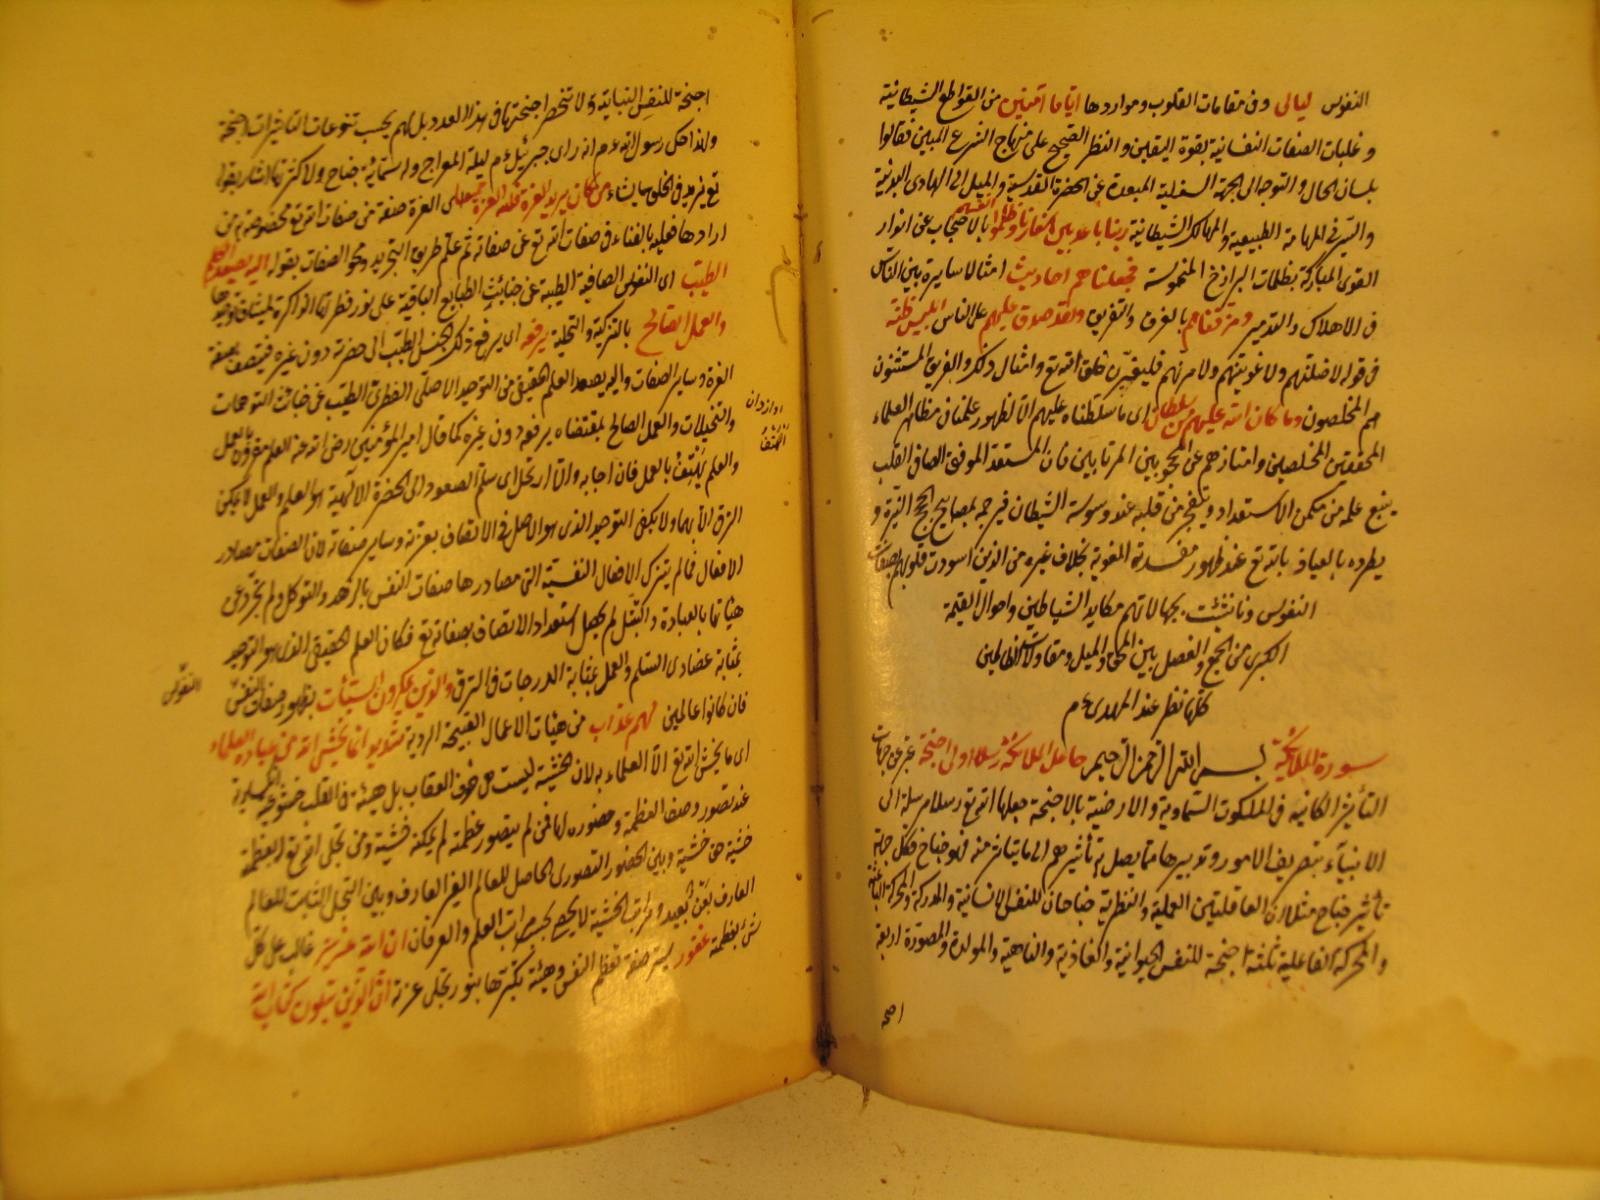 النفوس ليالى وفى مقامات القلوب ومواردها اياما آمنين من القواطع الشيطانية
وغلبات الصفات النفسانية بقوة اليقين والنظر الصحيح على منهاج الشرع المبين فقالوا
بلسان الحال والتوجه الى الجهة السفلية المبعدة عن الحضرة القدسية والميل الى الهاوى البدنية
والسير فى المهامة الطبيعية والمهالك الشيطانية ربنا باعد بين اسفارنا وظلموا انفسهم بالاحتجاب عن انوار
القوى المباركة بظلمات البرازخ المنحوسة فجعلناهم احاديث امثالا سايرة بين الناس
فى الاهلاك والتدمير ومزقناهم بالغرق والتفريق ولقد صدق عليهم على الناس ابليس ظنه
فى قوله لاضلنهم ولاغوينهم ولآمرنهم فليغيرن خلق الله تع وامثال ذلك والفريق المستثنون
هم المخلصون وما كان الله عليهم من سلطان اى ما سلطناه عليهم الا لظهور علمنا فى مظاهر العلماء
المحققين المخلصين وامتيازهم عن المحجوبين المرتابين فان المستعد الموفق الصافى القلب
ينبع علمه من مكمن الاستعداد ويتفجر من قلبه عند وسوسة الشيطان فيرجمه بمصابيح الحجج النيرة و
يطرده بالعياذ بالله تع عند ظهور مفسدته المغوية بخلاف غيره من الذين اسودت قلوبهم بصفات
النفوس وناسبت بجهالاتهم مكايد الشياطين واحوال القيمة
الكبرى من الجمع والفصل بين المحق والمبطل ومقاولات الظالمين
كلها تظهر عند المهدى ع م
سورة الملايكة بسم الله الرحمن الرحيم جاعل الملائكة رسلا اولى اجنحة عبر عن جهات
التأثير الكائنة فى الملكوت السماوية والارضية بالاجنحة جعلها الله تع رسلا مرسلة الى
الانبياء بتصريف الامور وتدبيرها فما يصل به تأثيرهم الى ما يتأثر منه فهو جناح فكل جهة
تأثير جناح مثلا ان العاقلتين العملية والنظرية جناحان للنفس الانسانية والمدركة والمحركة الباعثة
والمحركة الفاعلية ثلثة اجنحة للنفس الحيوانية والغاذية والنامية والمولدة والمصورة اربعة
اجنحة
اجنحة للنفس النباتية ولا تنحصر اجنحتها فى هذا العدد بل لهم بحسب تنوعات التاثيرات اجنحة
ولذا حكى رسول الله ع م انه راى جبرئيل ع م ليلة المعراج وله ستمائة جناح ولاكثرتها اشار بقوله
تع يزيد فى الخلق ما يشاء من كان يريد العزة فلله العزة جميعا اى العزة صفة من صفات الله تع مخصوصة به من
ارادها فعليه بالفناء فى صفات الله تع عن صفاته ثم علم طريق التجريد ومحو الصفات بقوله اليه يصعد الكلم
الطيب اى النفوس الصافية الطيبة عن خبائث الطبايع الباقية على نور فطرتها الذاكرة لميثاق توحيدها
والعمل الصالح بالتزكية والتحلية يرفعه اى يرفع ذلك الجنس الطيب الى حضرته دون غيره فيتصف بصفة
العزة وساير الصفات واليه يصعد العلم الحقيقى من التوحيد الاصلى الفطرى الطيب عن خباثة التوهمات
والتخيلات والعمل الصالح بمقتضاه يرفعه دون غيره كما قال امير المؤمنين رضى الله عنه العلم مقرون بالعمل
والعلم يهتف بالعمل فان اجابه والا ارتحل اى سلم الصعود الى الحضرة الالهية هو العلم والعمل لا يمكن
الترقى الا بهما ولا يكفى التوحيد الذى هو الاصل فى الاتصاف بعزته وساير صفاته لان الصفات مصادر
الافعال فما لم يترك الافعال النفسية التى مصادرها صفات النفس بالزهد والتوكل ولم يتجرد عن
هيآتها بالعبادة والتبتل لم يحصل استعداد الاتصاف بصفاته تع فكان العلم الحقيقى الذى هو التوحيد
بمثابة عضادى السلم والعمل بمثابة الدرجات فى الترقى والذين يمكرون السيئات بظهور صفات النفس
النفوس
فان كانوا عالمين لهم عذاب من هيئات الاعمال القبيحة الردية شديد انما يخشى الله من عباده العلماء
اى ما يخشى الله تع الا العلماء به لان الخشية ليست هى خوف العقاب بل هيئة فى القلب خشوعية انكسارية
عند تصور وصف العظمة وحضوره لها فمن لم يتصور عظمته لم يمكنه خشية ومن تجلى الله تع له بعظمته
خشيه حق خشيته وبين الحضور التصورى الحاصل للعالم الغير العارف وبين التجلى الثابت للعالم
العارف بون بعيد ومراتب الخشية لا يحصى بحسب مراتب العلم والعرفان ان الله عزيز غالب على كل
شئ بعظمته غفور يستر صفة تعظم النفس وهيئة تكبرها بنور تجلى عزته ان الذين يتلون كتاب الله